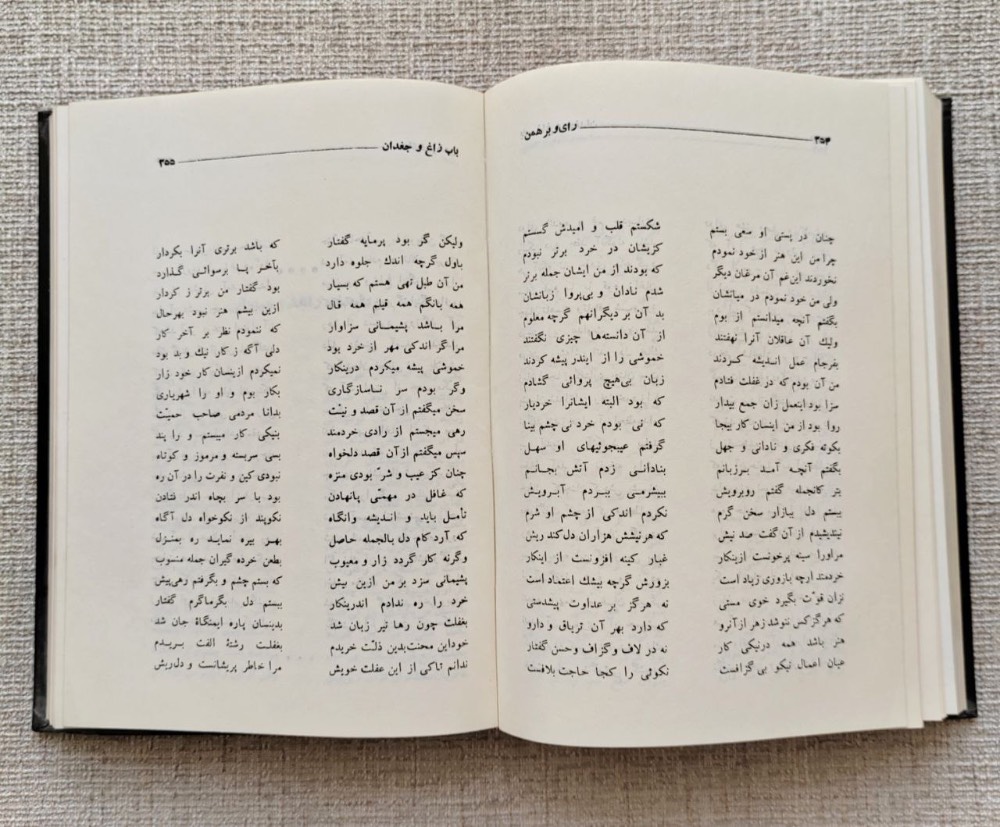 ۳۵۴ رای و برهمن
چنان در پستی او سعی بستم شکستم قلب و امیدش گسستم
چرا من این هنر از خود نمودم کزیشان در خرد برتر نبودم
نخوردند این‌غم آن مرغان دیگر که بودند از من ایشان جمله برتر
ولی من خود نمودم در میانشان شدم نادان و بی‌پروا زبانشان
بگفتم آنچه میدانستم از بوم بد آن بر دیگرانهم گرچه معلوم
ولیك آن عاقلان آنرا نهفتند از آن دانسته‌ها چیزی نگفتند
بفرجام عمل اندیشه کردند خموشی را از ایندر پیشه کردند
من آن بودم که در غفلت فتادم زبان بی‌هیچ پروائی گشادم
سزا بود اینعمل زان جمع بیدار که بود البته ایشانرا خردیار
روا بود از من اینسان کار بیجا که نی بودم خرد نی چشم بینا
بکوته فکری و نادانی و جهل گرفتم عیبجوئیهای او سهل
بگفتم آنچه آمد بر زبانم بنادانی زدم آتش بجانم
بتر کانجمله گفتم روبرویش ببیشرمی ببردم آبرویش
ببستم دل ببازار سخن گرم نکردم اندکی از چشم او شرم
نیندیشدم از آن گفت صد نیش که هر نیشش هزاران دل کند ریش
مراورا سینه پرخونست ازینکار غبار کینه افزونست از اینکار
خردمند ارچه بازوری زیاد است بزورش گرچه بیشك اعتماد است
نزان قوّت بگیرد خوی مستی نه هرگز بر عداوت پیشدستی
که هرگز کس ننوشد زهر از آنرو که دارد بهر آن تریاق و دارو
هنر باشد همه درنیکی کار نه در لاف و گزاف و حسن گفتار
عیان اعمال نیکو بی گزافست نکوئی را کجا حاجت بلافست
باب زاغ و جغدان ۳۵۵
ولیکن گر بود پرمایه گفتار که باشد برتری آنرا بکردار
باول گرچه اندك جلوه دارد بآخر پا برسوائی گذارد
من آن طبل تهی هستم که بسیار بود گفتار من برتر ز کردار
همه بانگم همه قیلم همه قال ازین بیشم هنر نبود بهرحال
مرا باشد پشیمانی سزاوار که ننمودم نظر بر آخر کار
مرا گر اندکی مهر از خرد بود دلی آگه ز کار نیك و بد بود
خموشی پیشه میکردم درینکار نمیکردم ازینسان کار خود زار
وگر بودم سر ناسازگاری بکار بوم و او را شهریاری
سخن میگفتم از آن قصد و نیّت بدانا مردمی صاحب حمیّت
رهی میجستم از رادی خردمند بنیکی کار میبستم و را پند
سپس میگفتم از آن قصد دلخواه بسی سربسته و مرموز و کوتاه
چنان کز عیب و شرّ بودی منزه نبودی کین و نفرت را در آن ره
که غافل در مهمّی پانهادن بود با سر بچاه اندر فتادن
تأمل باید و اندیشه وانگاه نکوپند از نکوخواه دل آگاه
که آرد کام دل بالجمله حاصل بهر بیره نماید ره بمنزل
وگرنه کار گردد زار و معیوب بطعن خرده گیران جمله منسوب
پشیمانی سزد بر من ازین بیش که بستم چشم و بگرفتم رهی پیش
خرد را ره ندادم اندرینکار ببستم دل بگرماگرم گفتار
بغفلت چون رها تیر زبان شد بدینسان پاره ایمنگاهٔ جان شد
خوداین محنت بدین ذلّت خریدم بغفلت رشتهٔ الفت بریدم
ندانم تاکی از این غفلت خویش مرا خاطر پریشانست و دل‌ریش